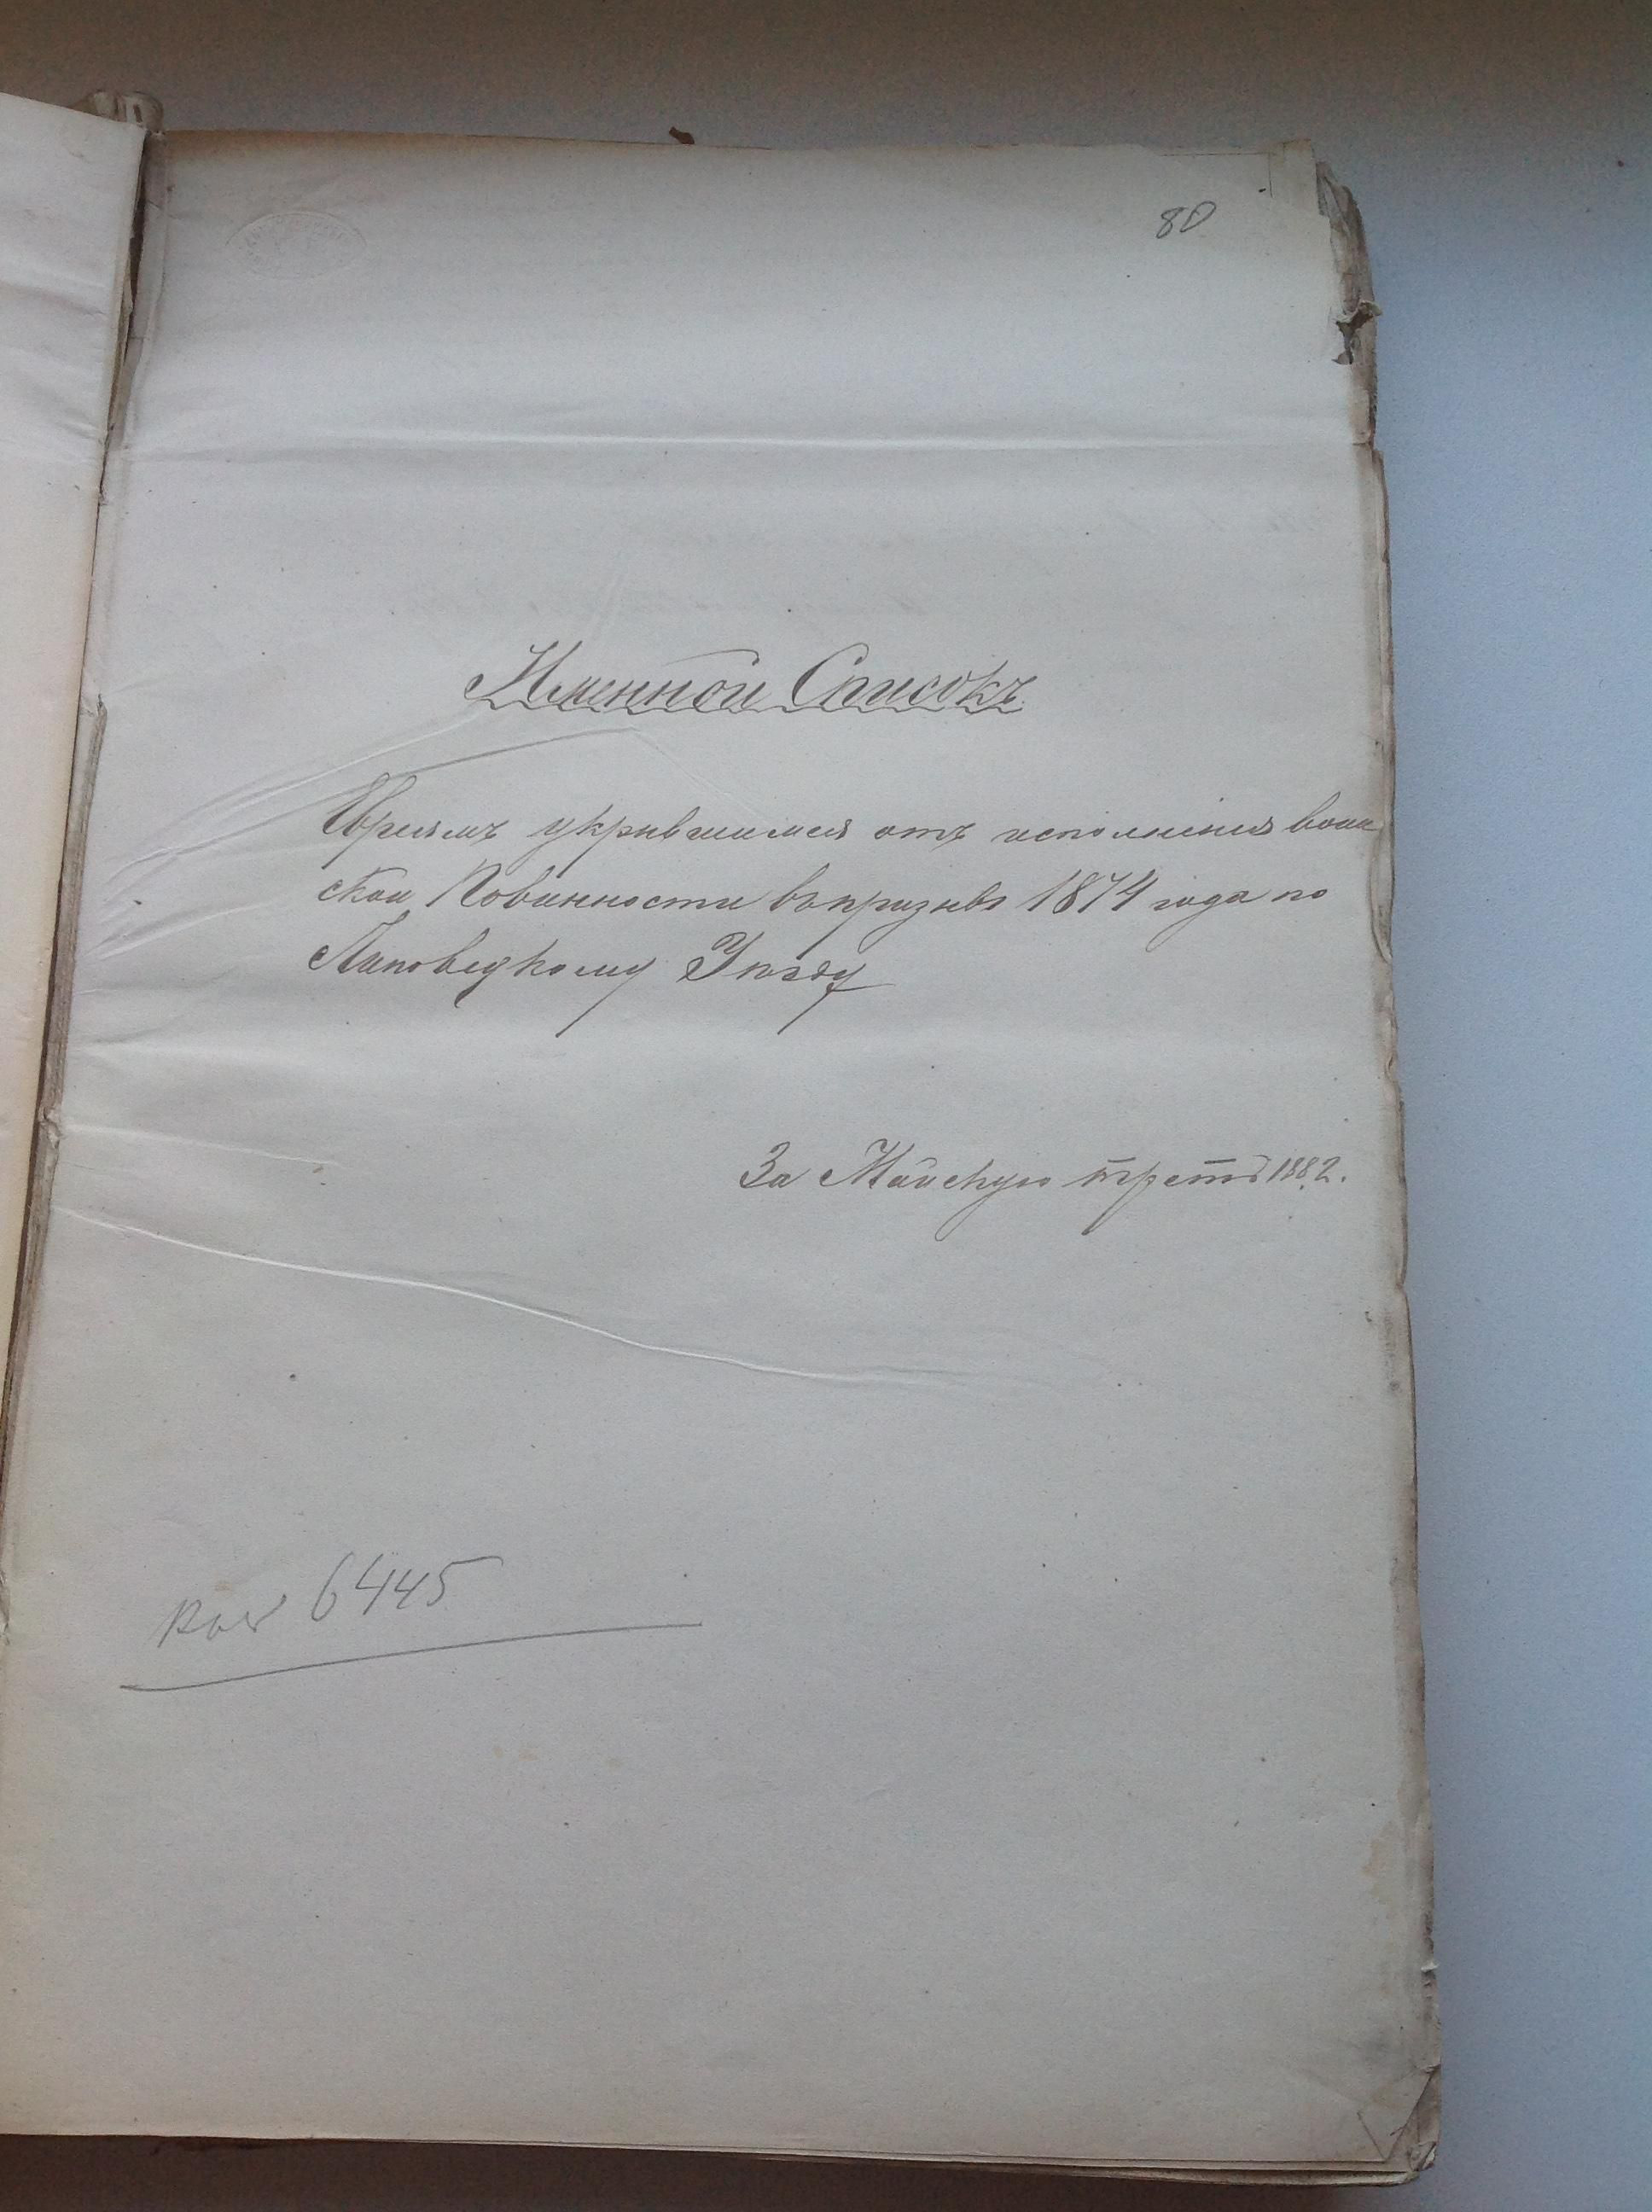 80
Именной Списокъ
Евреямъ укрывшимся отъ исполненія воин
ской Повинности въ призывъ 1874 года по
Липовецкому Уѣзду
За Майскую треть 1882.
6445